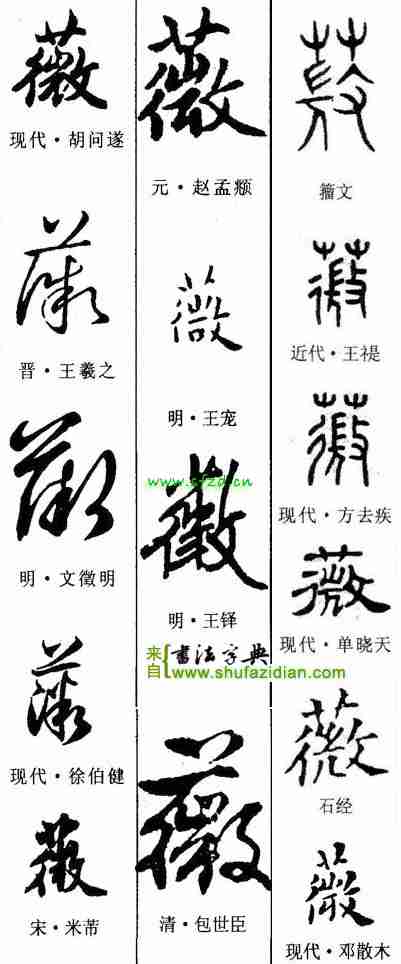 薇
现代·胡问遂
薇
晋·王羲之
薇
明·文徵明
薇
现代·徐伯健
薇
宋·米芾
薇
元·赵孟頫
薇
明·王宠
www.sfzd.cn
薇
明·王铎
来自{书法字典
www.shufazidian.com
薇
清·包世臣
薇
籀文
薇
近代·王禔
薇
现代·方去疾
薇
现代·单晓天
薇
石经
薇
现代·邓散木